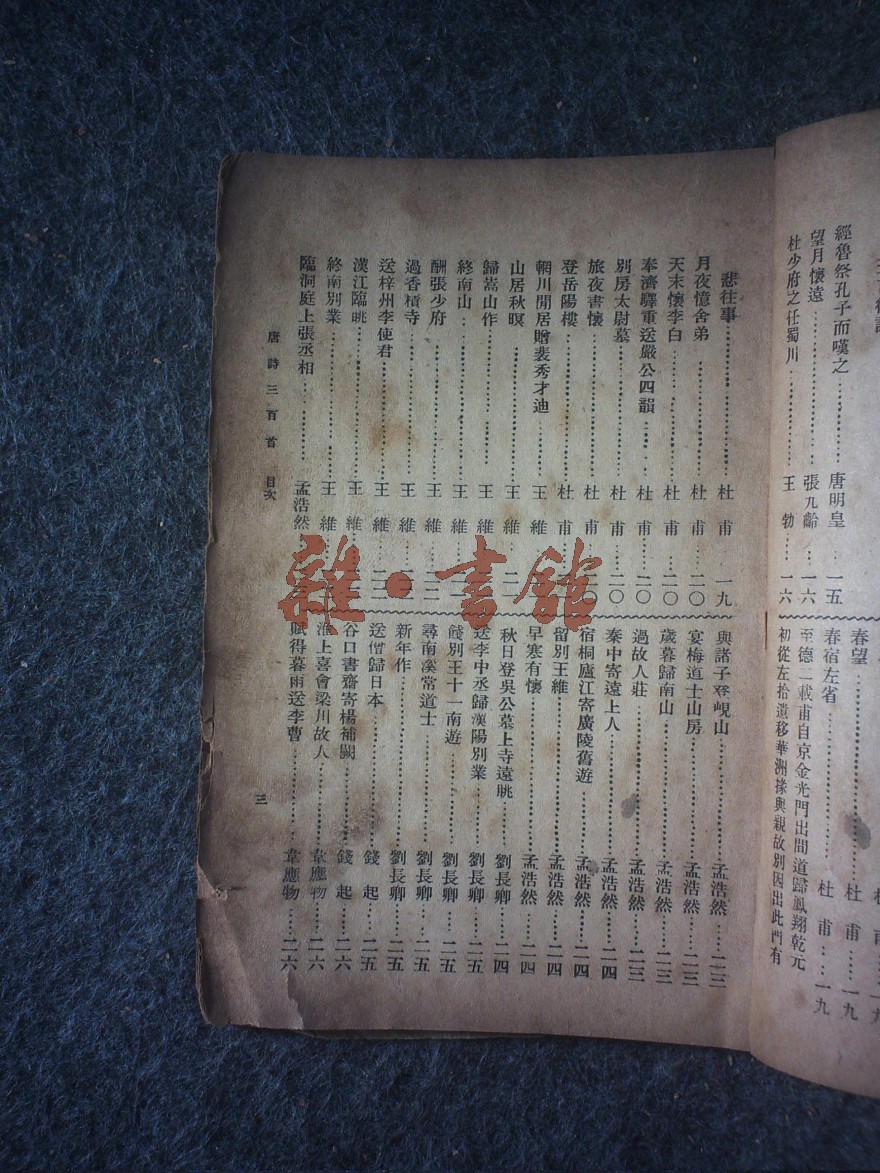 經魯祭孔子而嘆之………唐明皇…一五
望月懷遠………張九齡…一六
杜少府之任蜀川………王勃…一六
春望………杜甫…一九
春宿左省………杜甫…一九
至德二載甫自京金光門出間道歸鳳翔乾元
初從左拾遺移華洲掾與親故別因出此門有
悲往事………杜甫…一九
月夜憶舍弟………杜甫…二〇
天末懷李白………杜甫…二〇
奉濟驛重送嚴公四韻………杜甫…二〇
別房太尉墓………杜甫…二〇
旅夜書懷………杜甫
登岳陽樓………杜甫
輞川閒居贈裴秀才迪………王維
山居秋暝………王維
歸嵩山作………王維
終南山………王維
酬張少府………王維
過香積寺………王維
送梓州李使君………王維
漢江臨眺………王維
終南別業………王維
臨洞庭上張丞相………孟浩然
與諸子登峴山………孟浩然…二三
宴梅道士山房………孟浩然…二三
歲暮歸南山………孟浩然…二三
過故人莊………孟浩然…二三
秦中寄遠上人………孟浩然…二四
宿桐廬江寄廣陵舊遊………孟浩然…二四
留別王維………孟浩然…二四
早寒有懷………孟浩然…二四
秋日登吳公墓上寺遠眺………劉長卿…二四
送李中丞歸漢陽別業………劉長卿…二五
餞別王十一南遊………劉長卿…二五
尋南溪常道士………劉長卿…二五
新年作………劉長卿…二五
送僧歸日本………錢起…二五
谷口書齋寄楊補闕………錢起…二六
淮上喜會梁川故人………韋應物…二六
賦得暮雨送李曹………韋應物…二六
唐詩三百首 目次
三
雜·書館